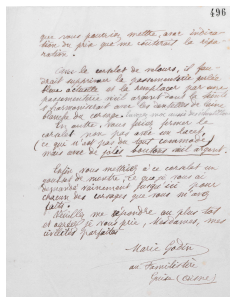 496
que vous pourriez mettre, avec indica-
tion du prix que me coûterait la répa-
ration.
Pour le corselet de velours, il fau-
drait supprimer la passementerie
actuelle et la remplacer par une
passementerie
s'harmonisant avec les
du corsage,
En outre, vous ferez fermer le
corselet non pas avec un lacet
(ce qui n'est pas du tout commode)
mais avec de jolis boutons
Enfin vous mettrez à ce corselet un
gousset de montre, ce que je vous ai
demandé vainement jusqu'ici pour
chacun des corsages que vous m'avez
faits.
Veuillez me répondre au plus tôt
et agréer, je vous prie, Mesdames, mes
civilités parfaites.
Marie Godin
au Familistère
Guise (Aisne)